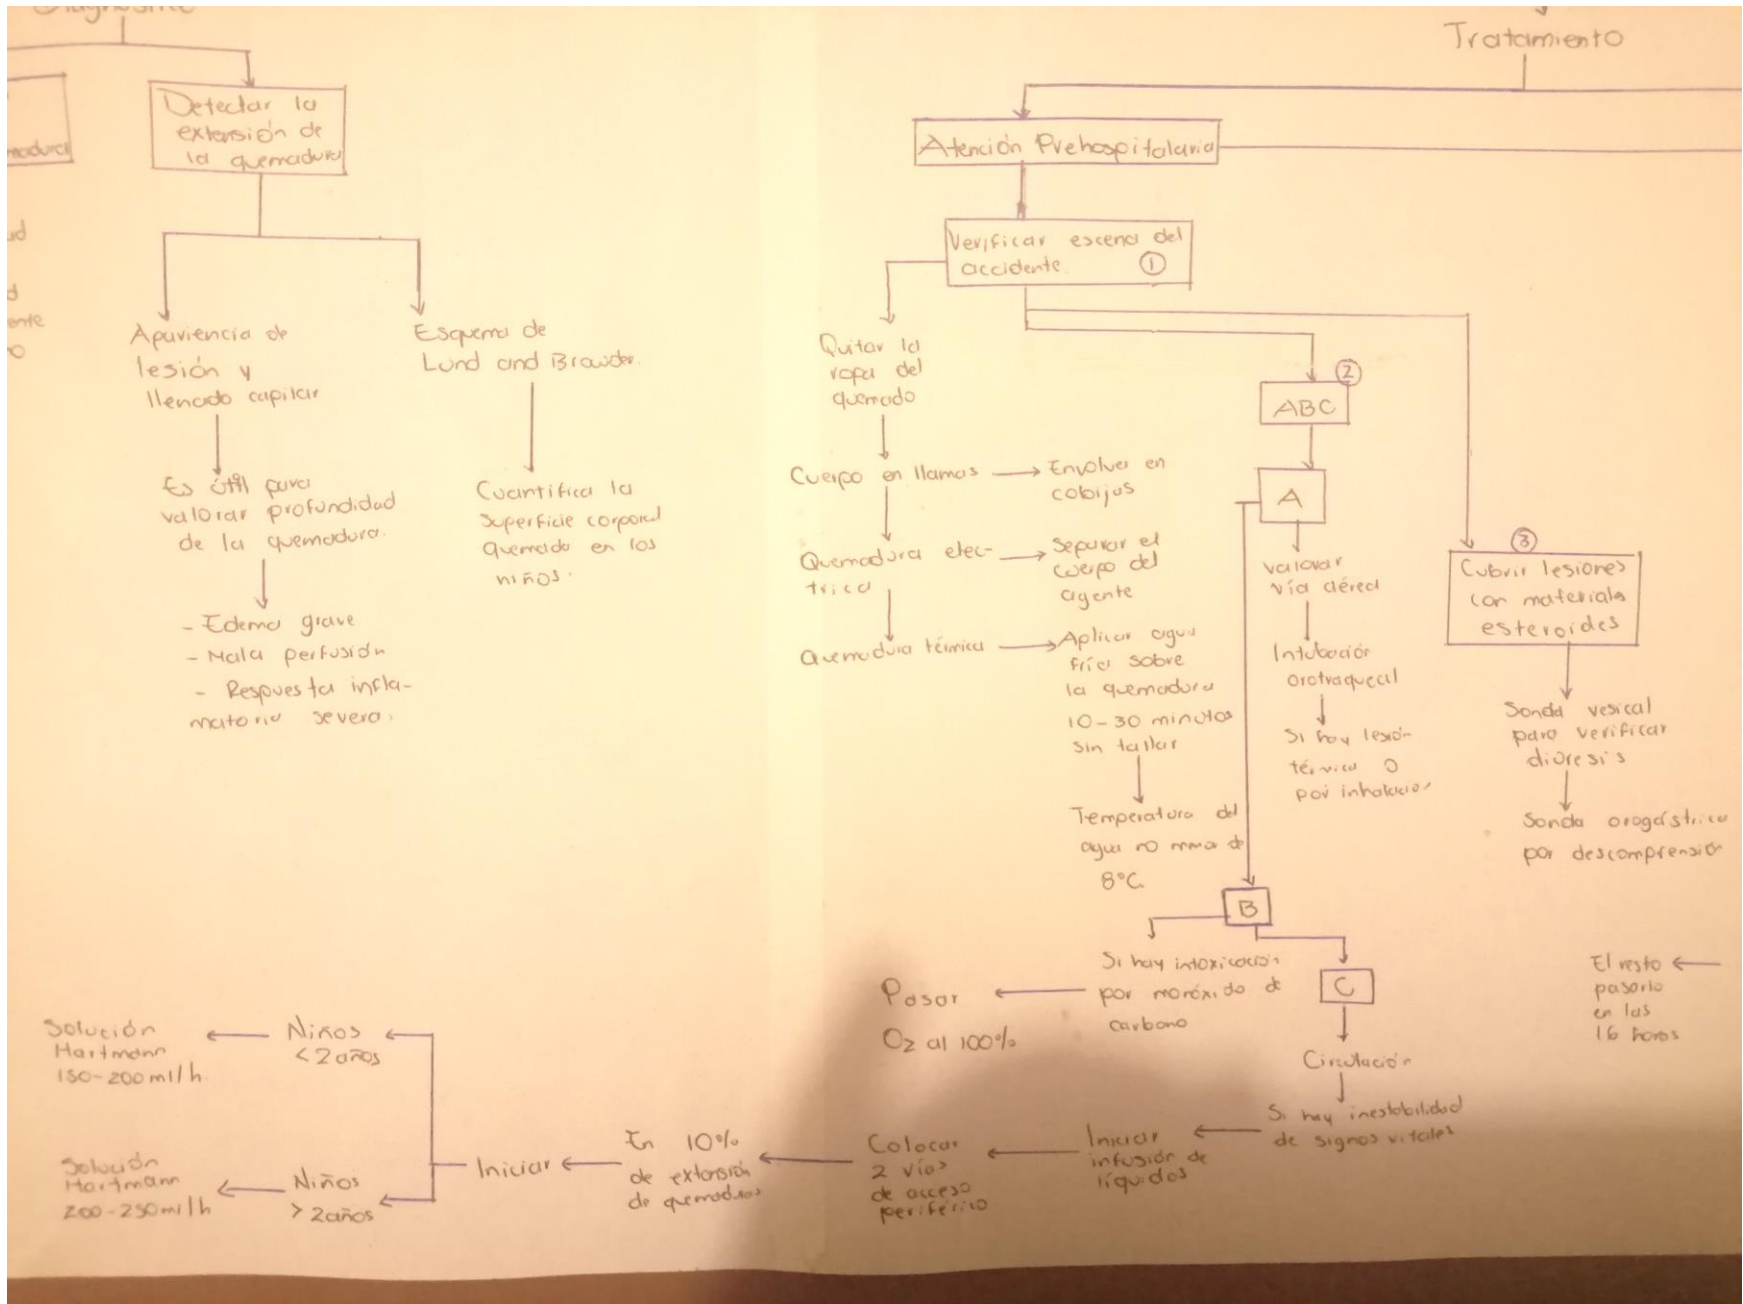 Diagnóstico
Detectar la
extensión de
la quemadura
Apariencia de
lesión y
llenado capilar
Es útil para
valorar profundidad
de la quemadura.
- Edema grave
- Mala perfusión
- Respuesta infla-
matoria severa.
Esquema de
Lund and Browder.
Cuantifica la
superficie corporal
quemada en los
niños.
Tratamiento
Atención Prehospitalaria
Verificar escena del
accidente. 1
Quitar la
ropa del
quemado
Cuerpo en llamas
Envolver en
cobijas
Quemadura elec-
trica
Separar el
cuerpo del
agente
Quemadura térmica
Aplicar agua
fría sobre
la quemadura
10-30 minutos
sin tallar
Temperatura del
agua no de
8°C.
2
ABC
A
valorar
vía aérea
Intubación
orotraqueal
Si hay lesión
térmica o
por inhalación
3
Cubrir lesiones
con materiales
esteroides
Sonda vesical
para verificar
diuresis
Sonda orogástrica
por descomprensión
B
Si hay intoxicación
por monóxido de
carbono
Pasar
O2 al 100%
C
Circulación
Si hay inestabilidad
de signos vitales
Iniciar
infusión de
líquidos
Colocar
2 vías
de acceso
periférico
En 10%
de extensión
de quemaduras
Iniciar
Niños
< 2 años
Solución
Hartmann
150-200 ml/h.
Niños
> 2 años
Solución
Hartmann
200-250 ml/h
El resto
pasarlo
en las
16 horas